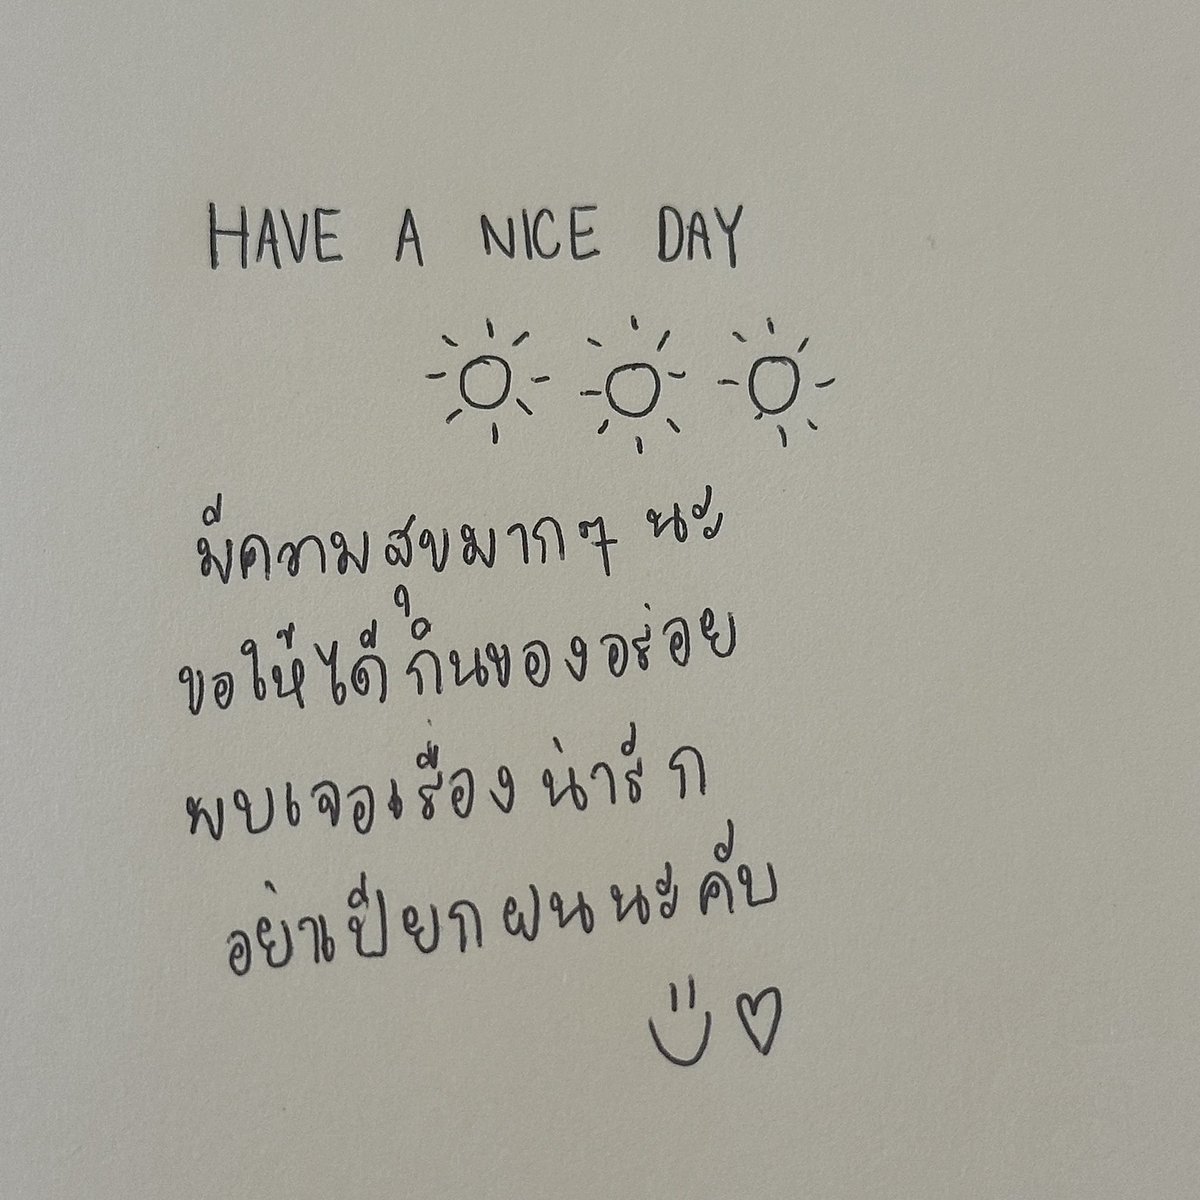 HAVE A NICE DAY
มีความสุขมากๆ นะ
ขอให้ได้กินของอร่อย
พบเจอเรื่องน่ารัก
อย่าเปียกฝนนะคับ